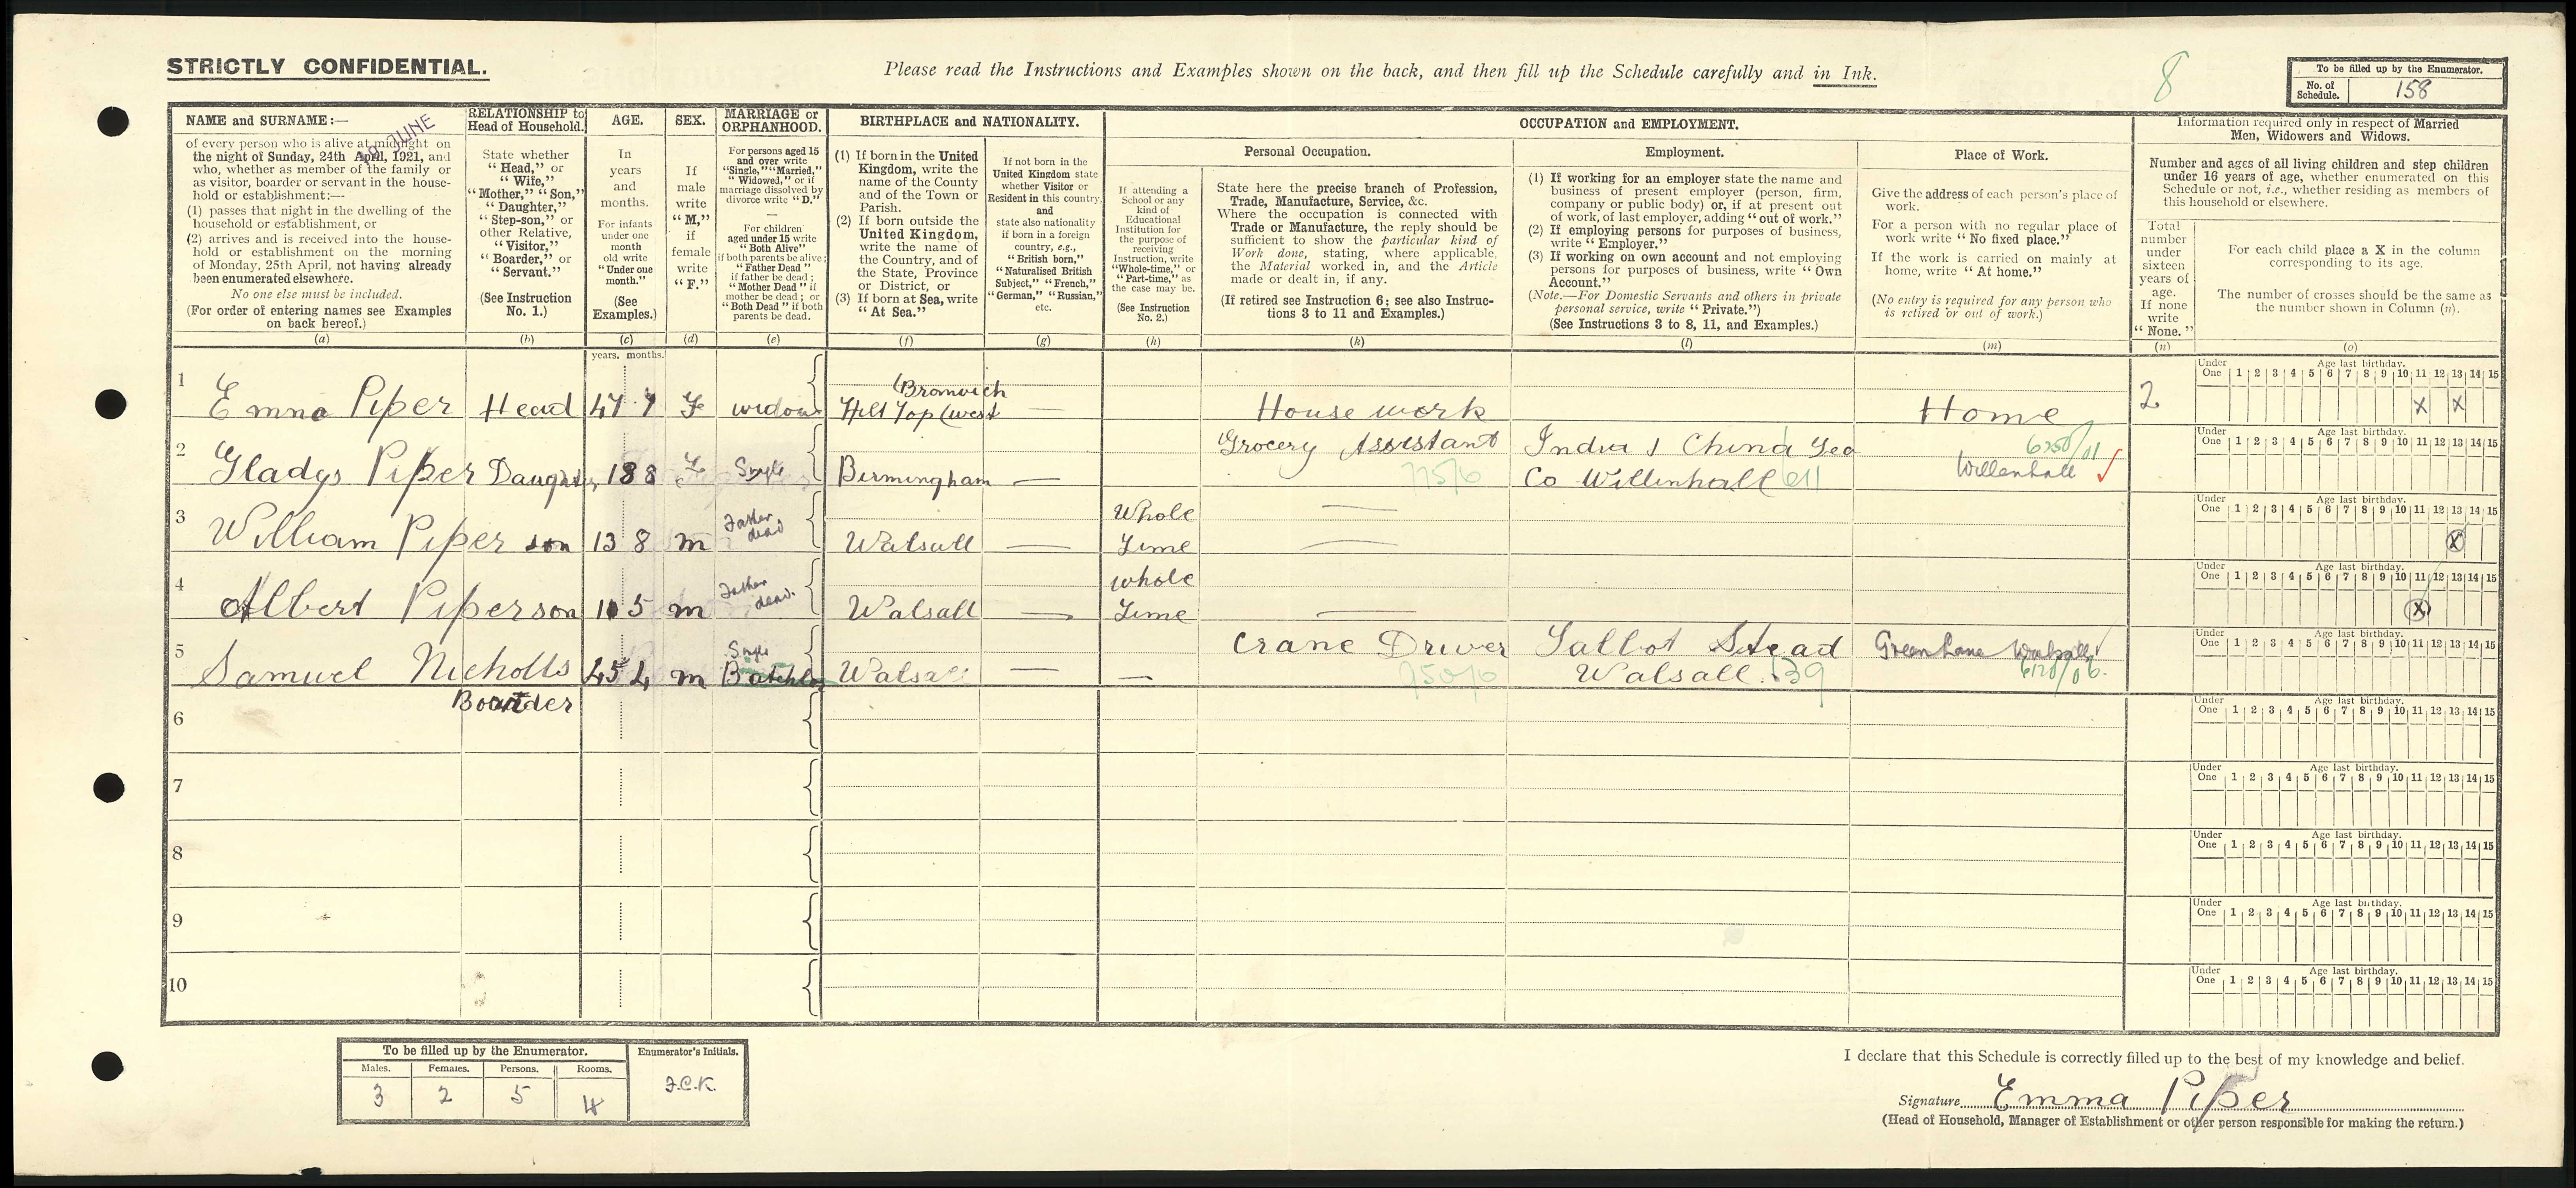 STRICTLY CONFIDENTIAL.
Please read the Instructions and Examples shown on the back, and then fill up the Schedule carefully and in Ink.
8
To be filled up by the Enumerator.
No. of Schedule. 158
NAME and SURNAME:—
of every person who is alive at midnight on
the night of Sunday, 24th April, 1921, and
19 JUNE
who, whether as member of the family or
as visitor, boarder or servant in the house-
hold or establishment:—
(1) passes that night in the dwelling of the
household or establishment, or
(2) arrives and is received into the house-
hold or establishment on the morning
of Monday, 25th April, not having already
been enumerated elsewhere.
No one else must be included.
(For order of entering names see Examples
on back hereof.)
(a)
RELATIONSHIP to
Head of Household.
State whether
"Head," or
"Wife,"
"Mother," "Son,"
"Daughter,"
"Step-son," or
other Relative,
"Visitor,"
"Boarder," or
"Servant."
(See Instruction
No. 1.)
(b)
AGE.
In
years
and
months.
For infants
under one
month
old write
"Under one
month."
(See
Examples.)
(c)
SEX.
If
male
write
"M,"
if
female
write
"F."
(d)
MARRIAGE or
ORPHANHOOD.
For persons aged 15
and over write
"Single," "Married,"
"Widowed," or if
marriage dissolved by
divorce write "D."
—
For children
aged under 15 write
"Both Alive"
if both parents be alive;
"Father Dead"
if father be dead;
"Mother Dead" if
mother be dead; or
"Both Dead" if both
parents be dead.
(e)
BIRTHPLACE and NATIONALITY.
(1) If born in the United
Kingdom, write the
name of the County
and of the Town or
Parish.
(2) If born outside the
United Kingdom,
write the name of
the Country, and of
the State, Province
or District, or
(3) If born at Sea, write
"At Sea."
(f)
If not born in the
United Kingdom state
whether Visitor or
Resident in this country,
and
state also nationality
if born in a foreign
country, e.g.,
"British born,"
"Naturalised British
Subject," "French,"
"German," "Russian,"
etc.
(g)
OCCUPATION and EMPLOYMENT.
If attending a
School or any
kind of
Educational
Institution for
the purpose of
receiving
Instruction, write
"Whole-time," or
"Part-time," as
the case may be.
(See Instruction
No. 2.)
(h)
Personal Occupation.
State here the precise branch of Profession,
Trade, Manufacture, Service, &c.
Where the occupation is connected with
Trade or Manufacture, the reply should be
sufficient to show the particular kind of
Work done, stating, where applicable,
the Material worked in, and the Article
made or dealt in, if any.
(If retired see Instruction 6; see also Instruc-
tions 3 to 11 and Examples.)
(k)
Employment.
(1) If working for an employer state the name and
business of present employer (person, firm,
company or public body) or, if at present out
of work, of last employer, adding "out of work."
(2) If employing persons for purposes of business,
write "Employer."
(3) If working on own account and not employing
persons for purposes of business, write "Own
Account."
(Note.—For Domestic Servants and others in private
personal service, write "Private.")
(See Instructions 3 to 8, 11, and Examples.)
(l)
Place of Work.
Give the address of each person's place of
work.
For a person with no regular place of
work write "No fixed place."
If the work is carried on mainly at
home, write "At home."
(No entry is required for any person who
is retired or out of work.)
(m)
Information required only in respect of Married
Men, Widowers and Widows.
Number and ages of all living children and step children
under 16 years of age, whether enumerated on this
Schedule or not, i.e., whether residing as members of
this household or elsewhere.
Total
number
under
sixteen
years of
age.
If none
write
"None."
(n)
For each child place a X in the column
corresponding to its age.
The number of crosses should be the same as
the number shown in Column (n).
(o)
years. months.
Under One Age last birthday. 1 2 3 4 5 6 7 8 9 10 11 12 13 14 15
1 Emma Piper Head 47 7 F widow Hill Top (West Bromwich — House work Home 2 X X
Under One Age last birthday. 1 2 3 4 5 6 7 8 9 10 11 12 13 14 15
2 Gladys Piper Daughter 18 8 F Single Birmingham — Grocery Assistant 775/6 India & China Tea Co Willenhall 611 Willenhall 6250/01
Under One Age last birthday. 1 2 3 4 5 6 7 8 9 10 11 12 13 14 15
3 William Piper son 13 8 m Father dead Walsall — Whole Time — X
Under One Age last birthday. 1 2 3 4 5 6 7 8 9 10 11 12 13 14 15
4 Albert Piper son 11 5 m Father dead. Walsall — whole Time — X
Under One Age last birthday. 1 2 3 4 5 6 7 8 9 10 11 12 13 14 15
5 Samuel Nicholls Boarder 45 4 m Single Batchlor Walsall — — Crane Driver 950/0 Talbot Stead Walsall 139 Green Lane Walsall 6120/06.
Under One Age last birthday. 1 2 3 4 5 6 7 8 9 10 11 12 13 14 15
6
Under One Age last birthday. 1 2 3 4 5 6 7 8 9 10 11 12 13 14 15
7
Under One Age last birthday. 1 2 3 4 5 6 7 8 9 10 11 12 13 14 15
8
Under One Age last birthday. 1 2 3 4 5 6 7 8 9 10 11 12 13 14 15
9
Under One Age last birthday. 1 2 3 4 5 6 7 8 9 10 11 12 13 14 15
10
To be filled up by the Enumerator.
Males. Females. Persons. Rooms.
3 2 5 4
Enumerator's Initials.
F.C.K.
I declare that this Schedule is correctly filled up to the best of my knowledge and belief.
Signature Emma Piper
(Head of Household, Manager of Establishment or other person responsible for making the return.)